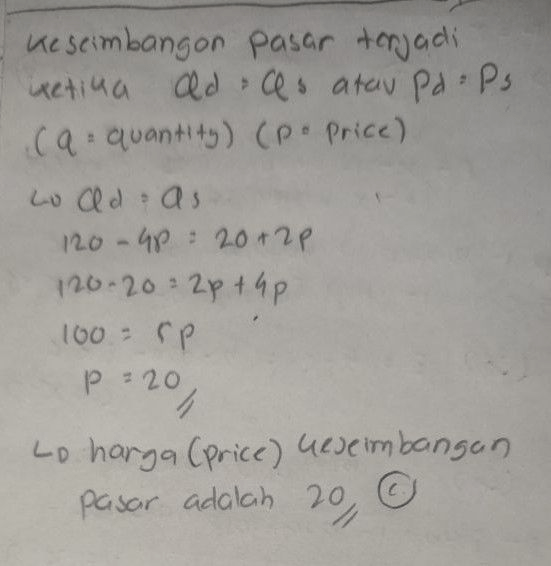 Keseimbangan pasar terjadi
ketika Qd = Qs atau Pd = Ps
(Q = quantity) (P = price)
↳ Qd = Qs
120 - 4p = 20 + 2p
120 - 20 = 2p + 4p
100 = 5p
p = 20
↳ harga (price) keseimbangan
pasar adalah 20 (C)